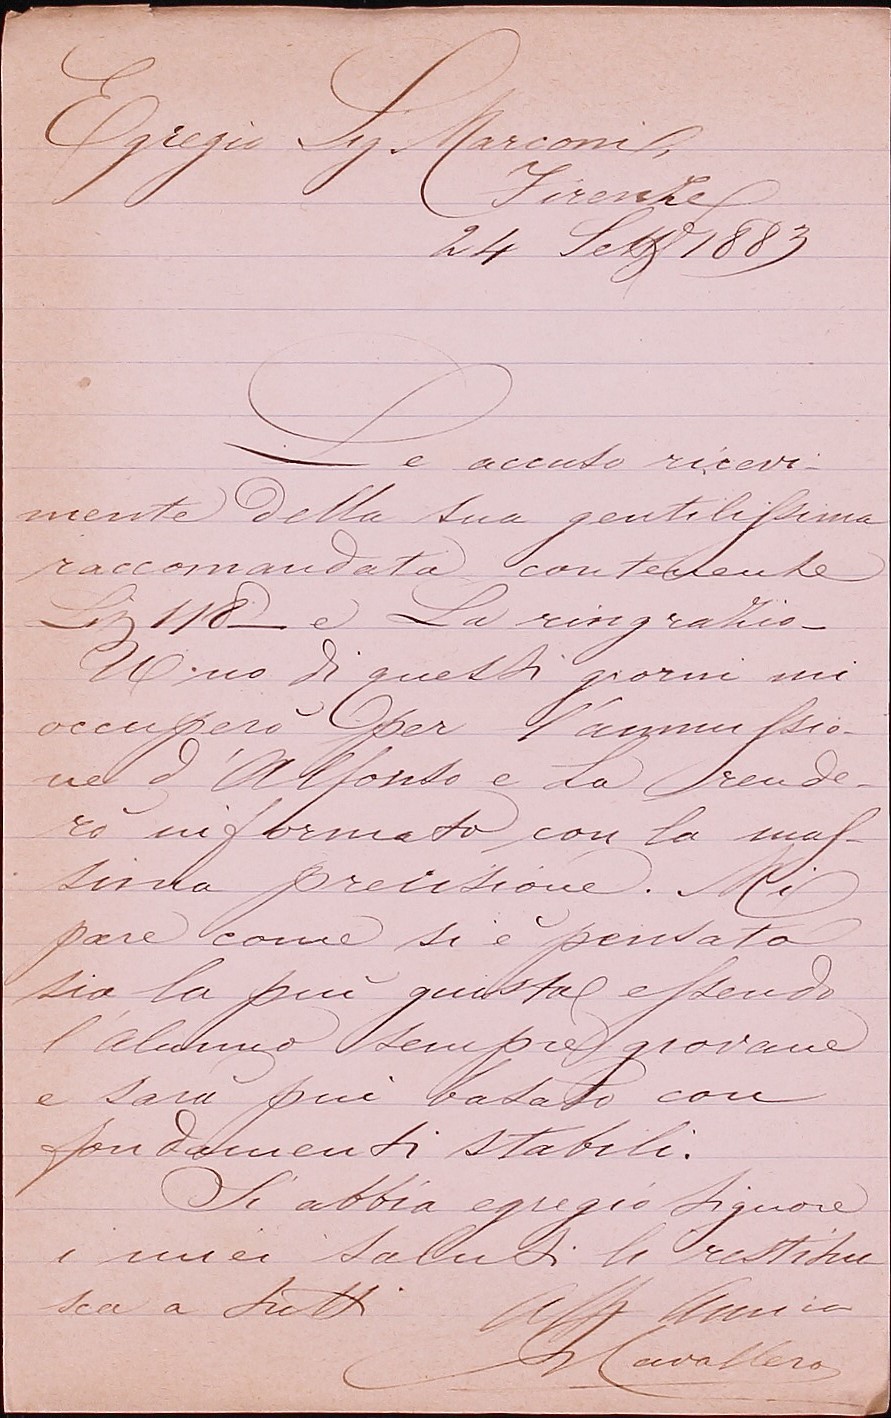 Egregio Sig. Marconi,
Firenze
24 Sett. 1883
Le accuso ricevi-
mento della sua gentilissima
raccomandata contenente
Lir 118 — e La ringrazio —
Uno di questi giorni mi
occuperò per l'ammissio-
ne d'Alfonso e La rende-
rò informato con la mas-
sima precisione. Mi
pare come si è pensato
sia la più giusta essendo
l'alunno sempre giovane
e sarà più basato con
fondamenti stabili.
Si abbia egregio Signore
i miei saluti li restitui
sca a tutti Aff Amica
Cavallero